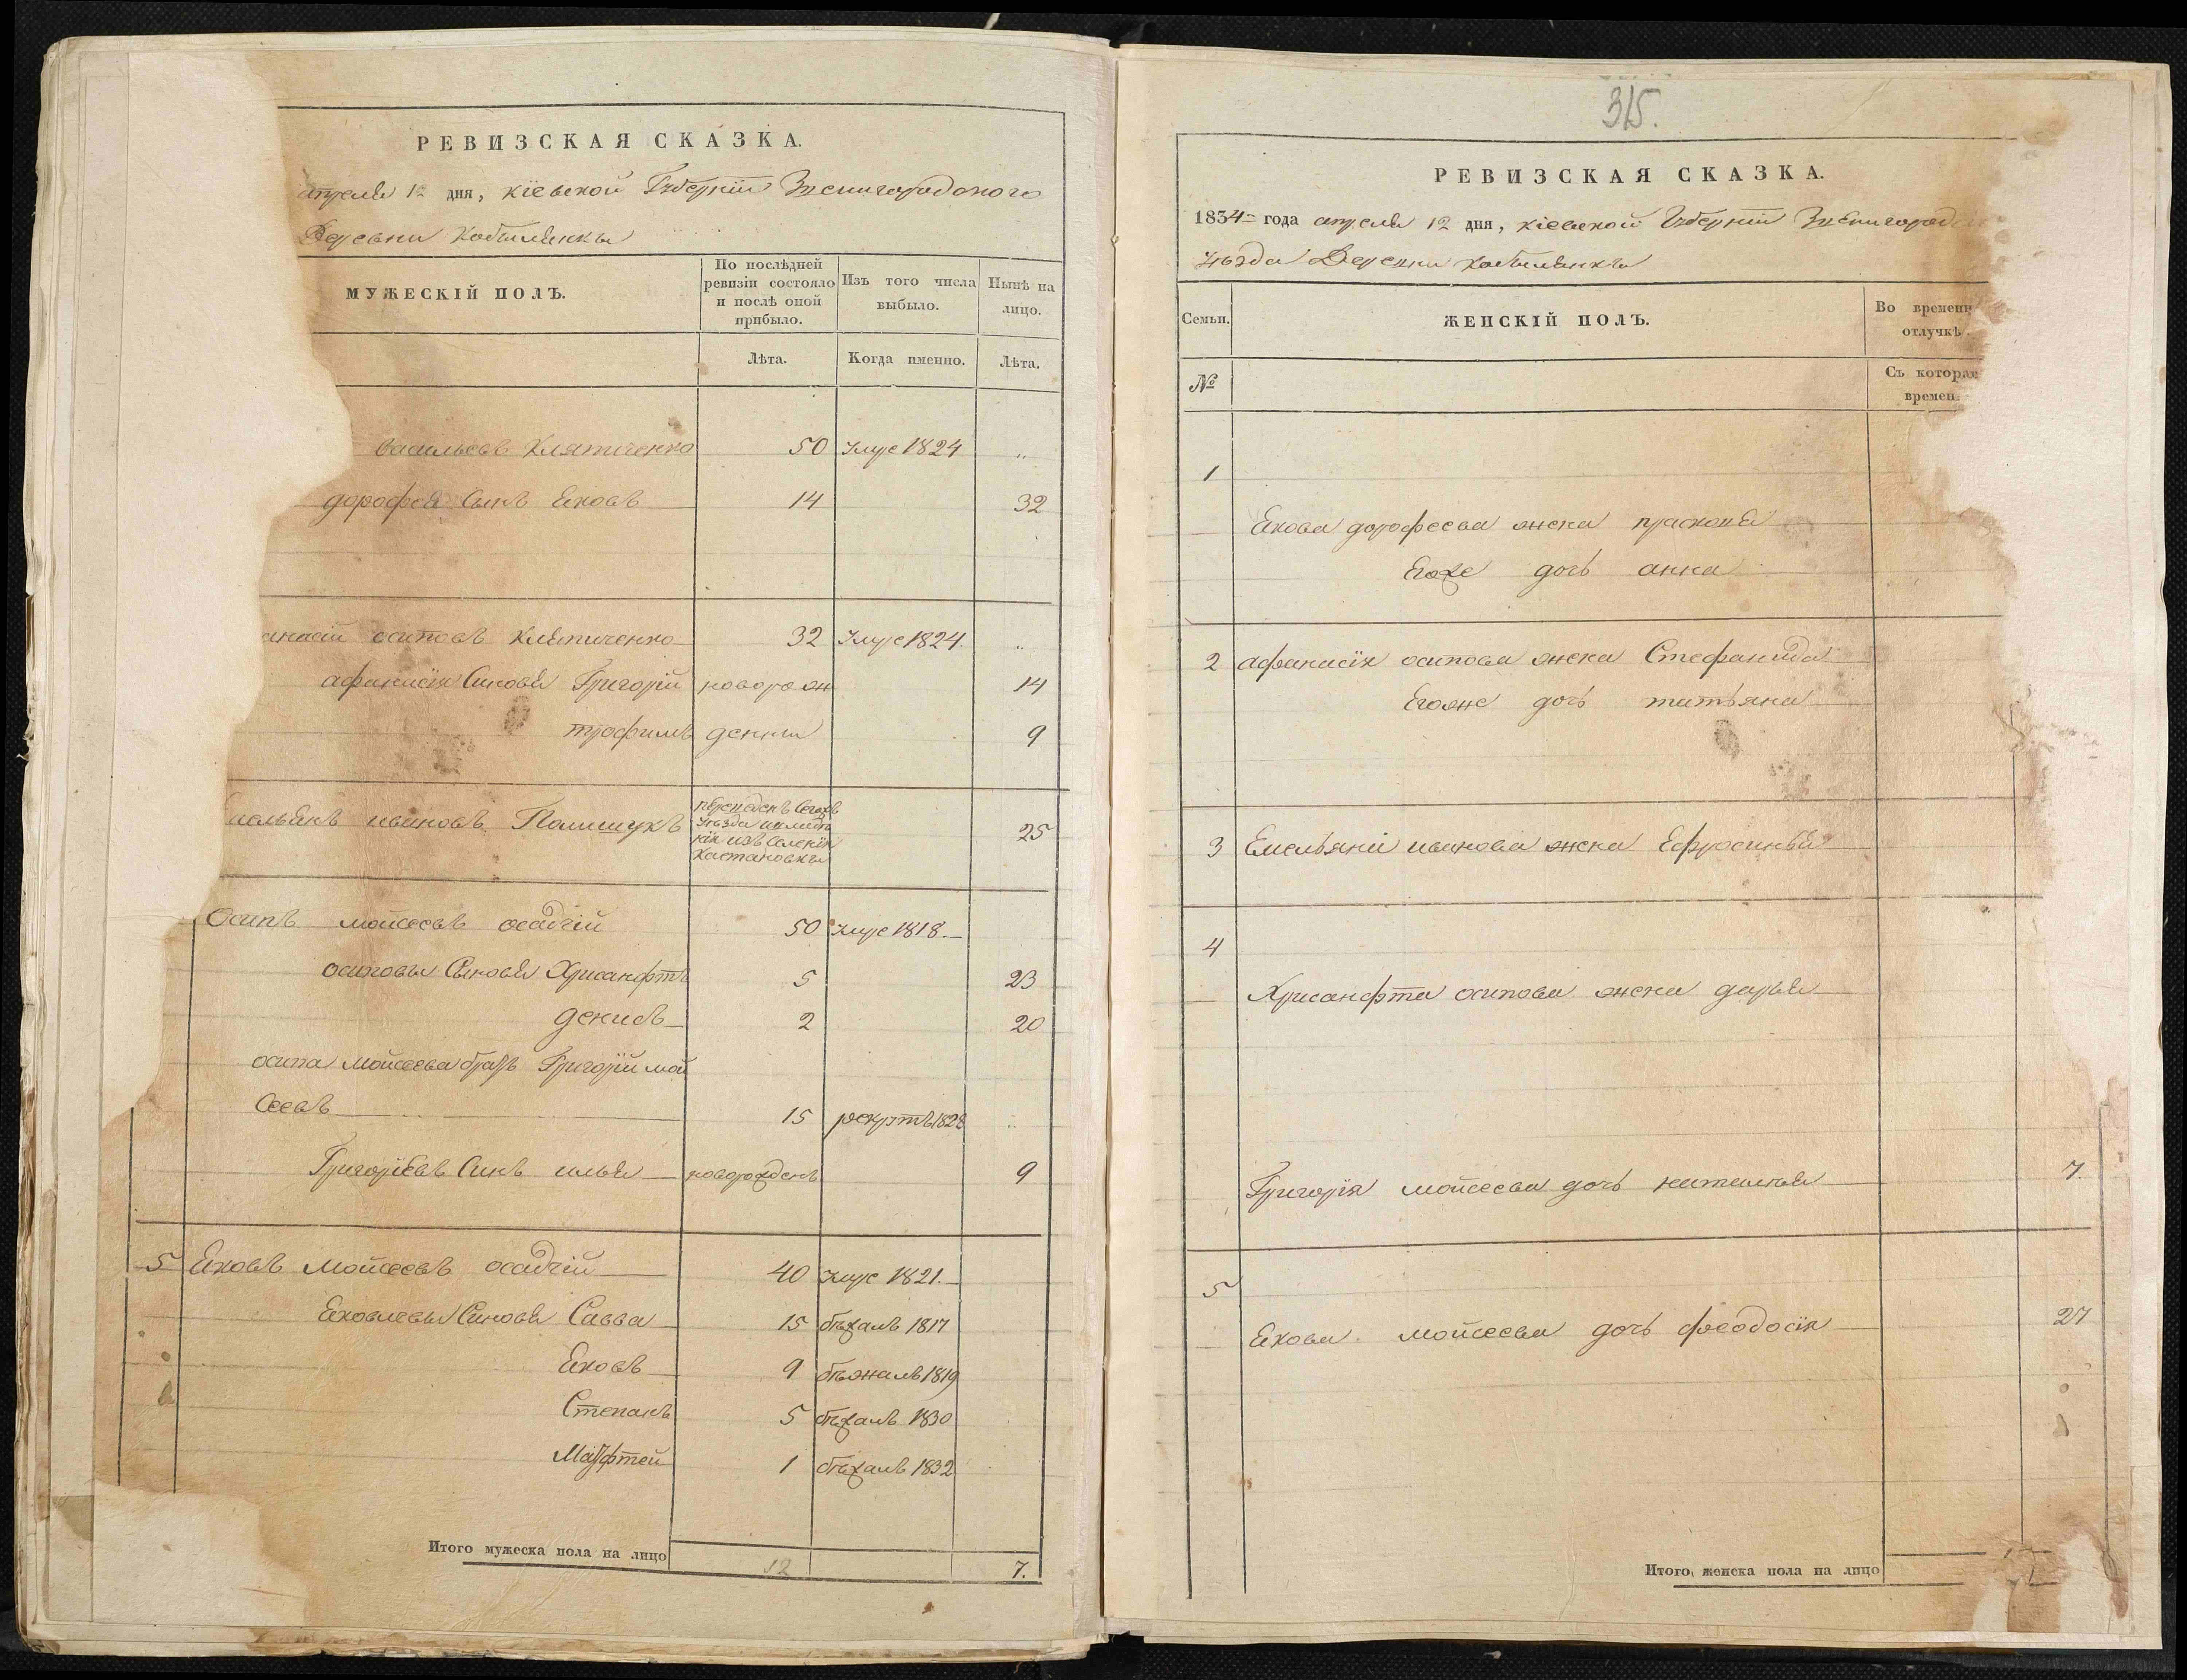 РЕВИЗСКАЯ СКАЗКА.
апреля 12 дня, кіевской Губерніи Звенигородского
Деревни Кобылянки
МУЖЕСКІЙ ПОЛЪ.
По послѣдней ревизіи состояло и послѣ оной прибыло.
Изъ того числа выбыло.
Нынѣ на лицо.
Лѣта.
Когда именно.
Лѣта.
васильевъ Клятиченко 50 Умре 1824 „
дорофея Сынъ Яковъ 14 32
анасій осиповъ Клятиченко 32 Умре 1824 „
афанасія Синовя Григорій новорож 14
трофимъ денны 9
ельянъ ивановъ Полищукъ 25
переведенъ
уѣзда
изъ селенія
Осипъ мойсеевъ осадчій 50 умре 1818.
осиповы Сыновя Хрисанфтъ 5 23
денисъ 2 20
осипа мойсеева братъ Григорій мой
сеевъ 15 рекрутъ 1828 „
Григоріевъ Синъ илья новорожденъ 9
5 Яковъ Мойсеевъ осадчій 40 умре 1821.
Яковлевы Синовя Савва 15 бѣжалъ 1817
Яковъ 9 бѣжалъ 1819
Степанъ 5 бѣжалъ 1830
Матфтей 1 бѣжалъ 1832
Итого мужеска пола на лицо 12 7.
315.
РЕВИЗСКАЯ СКАЗКА.
1834 года апреля 12 дня, кіевской Губерніи Звенигород
уѣзда Деревни кобылянки
Семьи.
ЖЕНСКІЙ ПОЛЪ.
Во времен
отлучкѣ
№
Съ котора
времен
1
Якова дорофеева жена прасковя
Егоже дочь анна
2 афанасія осипова жена Стефанида
Егоже дочь татьяна
3 Емельяна иванова жена Ефросинья
4
Хрисанфта осипова жена дарья
Григорія мойсеева дочь 7.
5
Якова мойсеева дочь феодосія 27
Итого женска пола на лицо